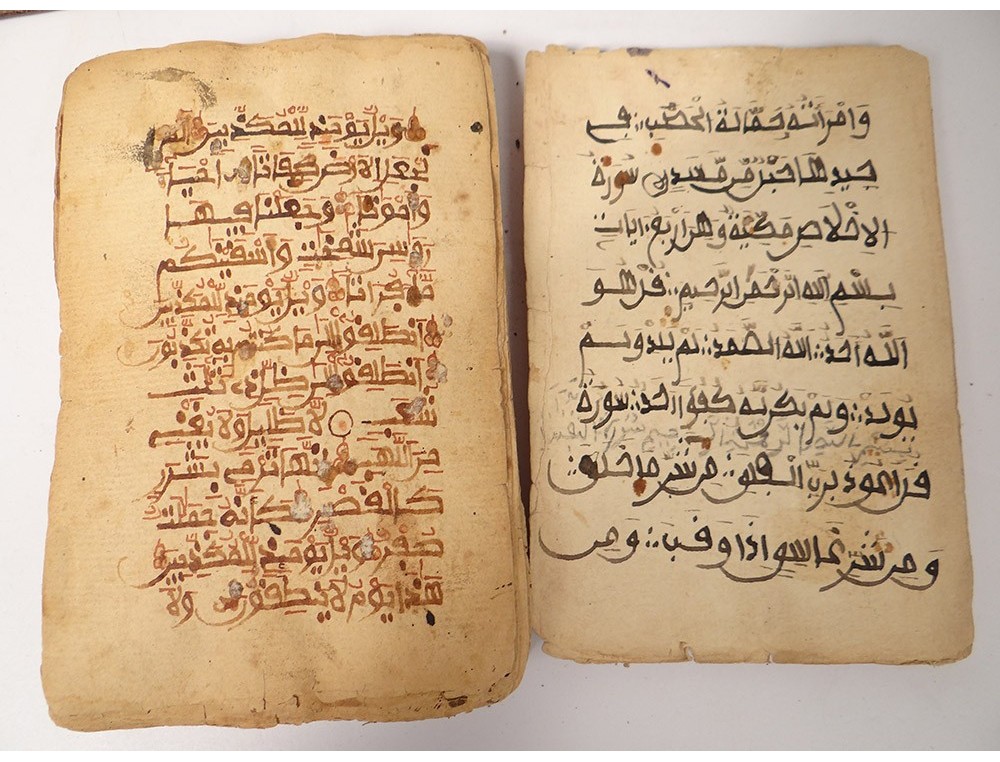 وَامْرَأَتُهُ حَمَّالَةَ الْحَطَبِ في
جيدها حبل من مسد سورة
الاخلاص مكية وهي اربع ايات
بسم الله الرحمن الرحيم قل هو
الله احد الله الصمد لم يلد ولم
يولد ولم يكن له كفوا احد سورة
قل اعوذ برب الفلق من شر ما خلق
ومن شر غاسق اذا وقب ومن
ويل يومئذ للمكذبين الم
نجعل الارض كفاتا احياء
وامواتا وجعلنا فيها
روسي شمخت واسقينكم
ماء فراتا ويل يومئذ للمكذبين
انطلقوا الى ما كنتم به تكذبون
انطلقوا الى ظل ذي ثلث
شعب لا ظليل ولا يغني
من اللهب انها ترمي بشرر
كالقصر كأنه جملت
صفر ويل يومئذ للمكذبين
هذا يوم لا ينطقون ولا